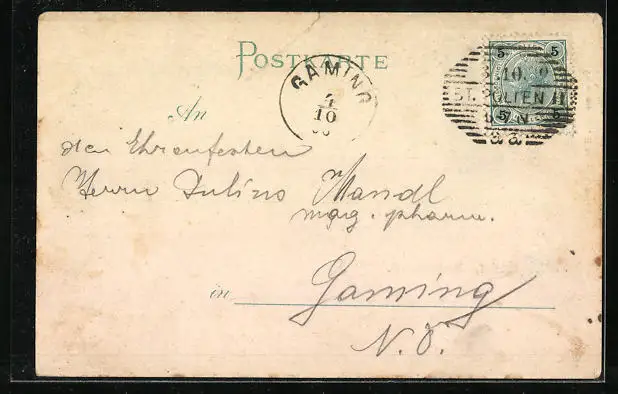 POSTKARTE
5 5
GAMING
4
10
10
ST. PÖLTEN
5 5
An
den Ehrenfesten
Herrn Julius Mandl
mag. pharm.
in Gaming
N. Ö.